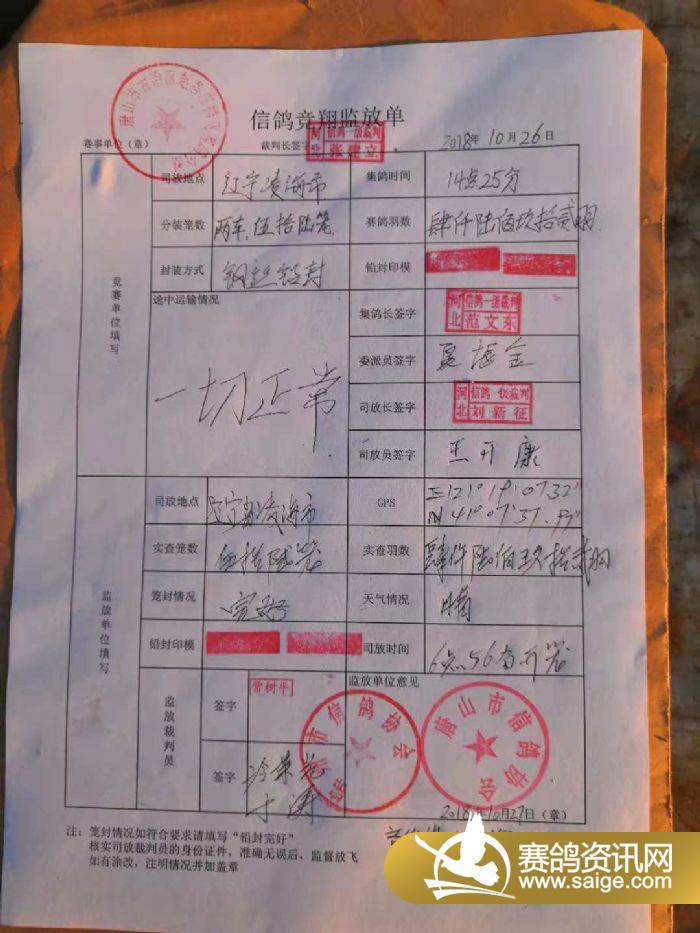 信鸽竞翔监放单
赛事单位（章） 裁判长签字 河北 信鸽一级裁判 张建立 2018年10月26日
竞赛单位填写
司放地点 辽宁凌海市 集鸽时间 14点25分
分装笼数 两车,伍拾陆笼 赛鸽羽数 肆仟陆佰玖拾贰羽
封装方式 钢丝铅封 铅封印模
途中运输情况 一切正常
集鸽长签字 河北 信鸽一级裁判 范文东
委派员签字
司放长签字 河北 信鸽一级裁判 刘新征
司放员签字 王开康
监放单位填写
司放地点 辽宁省凌海市 GPS E121°19'07.32"
N 41°07'37.99"
实查笼数 伍拾陆笼 实查羽数 肆仟陆佰玖拾贰羽
笼封情况 完好 天气情况 晴
铅封印模 司放时间 6点56分开笼
监放裁判员
签字 常树平
监放单位意见
唐山市信鸽协会
市信鸽协会
签字
2018年10月27日（章）
注：笼封情况如符合要求请填写“铅封完好”
核实司放裁判员的身份证件，准确无误后、监督放飞
如有涂改，注明情况并加盖章
赛鸽资讯网
www.saige.com